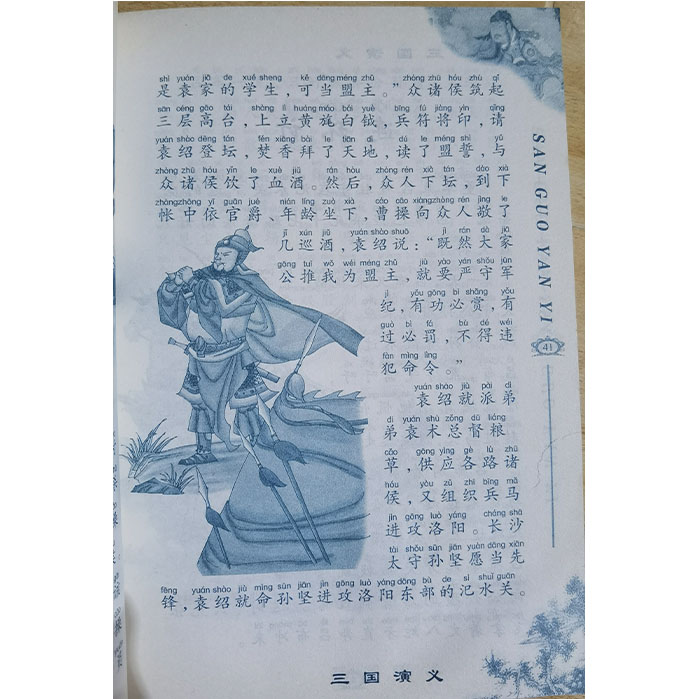 shì yuán jiā de xué sheng kě dāng méng zhǔ zhòng zhū hóu zhù qǐ
是袁家的学生，可当盟主。”众诸侯筑起
sān céng gāo tái shàng lì huáng máo bái yuè bīng fú jiàng yìn qǐng
三层高台，上立黄旄白钺，兵符将印，请
yuán shào dēng tán fén xiāng bài le tiān dì dú le méng shì yǔ
袁绍登坛，焚香拜了天地，读了盟誓，与
zhòng zhū hóu yǐn le xuè jiǔ rán hòu zhòng rén xià tán dào xià
众诸侯饮了血酒。然后，众人下坛，到下
zhàng zhōng yī guān jué nián líng zuò xià cáo cāo xiàng zhòng rén jìng le
帐中依官爵、年龄坐下，曹操向众人敬了
jǐ xún jiǔ yuán shào shuō jì rán dà jiā
几巡酒，袁绍说：“既然大家
gōng tuī wǒ wéi méng zhǔ jiù yào yán shǒu jūn
公推我为盟主，就要严守军
jì yǒu gōng bì shǎng yǒu
纪，有功必赏，有
guò bì fá bù dé wéi
过必罚，不得违
fàn mìng lìng
犯命令。”
yuán shào jiù pài dì
袁绍就派弟
di yuán shù zǒng dū liáng
弟袁术总督粮
cǎo gōng yìng gè lù zhū
草，供应各路诸
hóu yòu zǔ zhī bīng mǎ
侯，又组织兵马
jìn gōng luò yáng cháng shā
进攻洛阳。长沙
tài shǒu sūn jiān yuàn dāng xiān
太守孙坚愿当先
fēng yuán shào jiù mìng sūn jiān jìn gōng luò yáng dōng bù de sì shuǐ guān
锋，袁绍就命孙坚进攻洛阳东部的汜水关。
SAN GUO YAN YI
41
三国演义